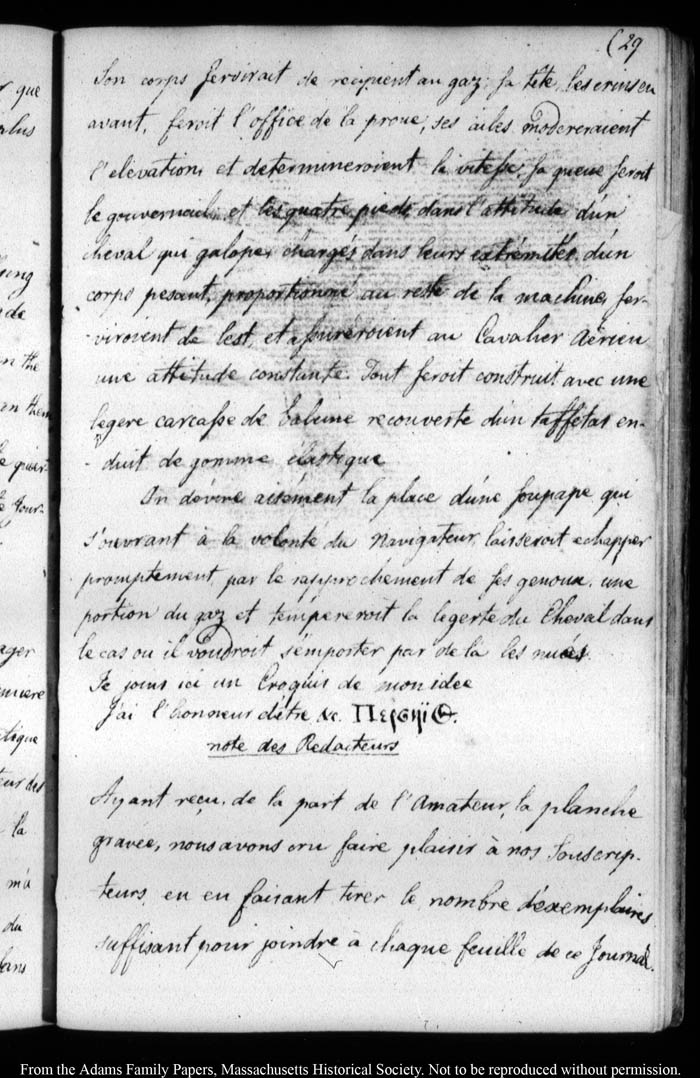 (29
Son corps serviroit de recipient au gaz; sa tête, les crins en
avant, feroit l'office de la proue, ses ailes modereraient
l'elévation, et determineroient la vitesse, sa queue seroit
le gouvernail, et les quatre pieds, dans l'attitude d'un
cheval qui galope, chargés dans leurs extrémités d'un
corps pesant, proportionné au reste de la machine, ser-
-viroient de lest, et assureroient au Cavalier Aërien
une attitude constante. Tout seroit construit avec une
legere carcasse de baleine recouverte d'un taffetas en-
-duit de gomme elastique
On devine aisément la place d'une soupape qui
s'ouvrant à la volonté du Navigateur, laisseroit echapper
promptement, par le rapprochement de ses genoux, une
portion du gaz et tempereroit la legerte du Cheval dans
le cas ou il voudroit s'emporter par de là les nuées.
Je joins ici un Croquis de mon idee
J'ai l'honneur d'etre &c.
note des Redacteurs
Ayant reçu, de la part de l'Amateur, la planche
gravée, nous avons cru faire plaisir à nos Souscrip-
-teurs, en en faisant tirer le nombre d'exemplaires
suffisant pour joindre à chaque feuille de ce Journal.
que
plus
de
on the
on them
ager
tique
la
du
From the Adams Family Papers, Massachusetts Historical Society. Not to be reproduced without permission.